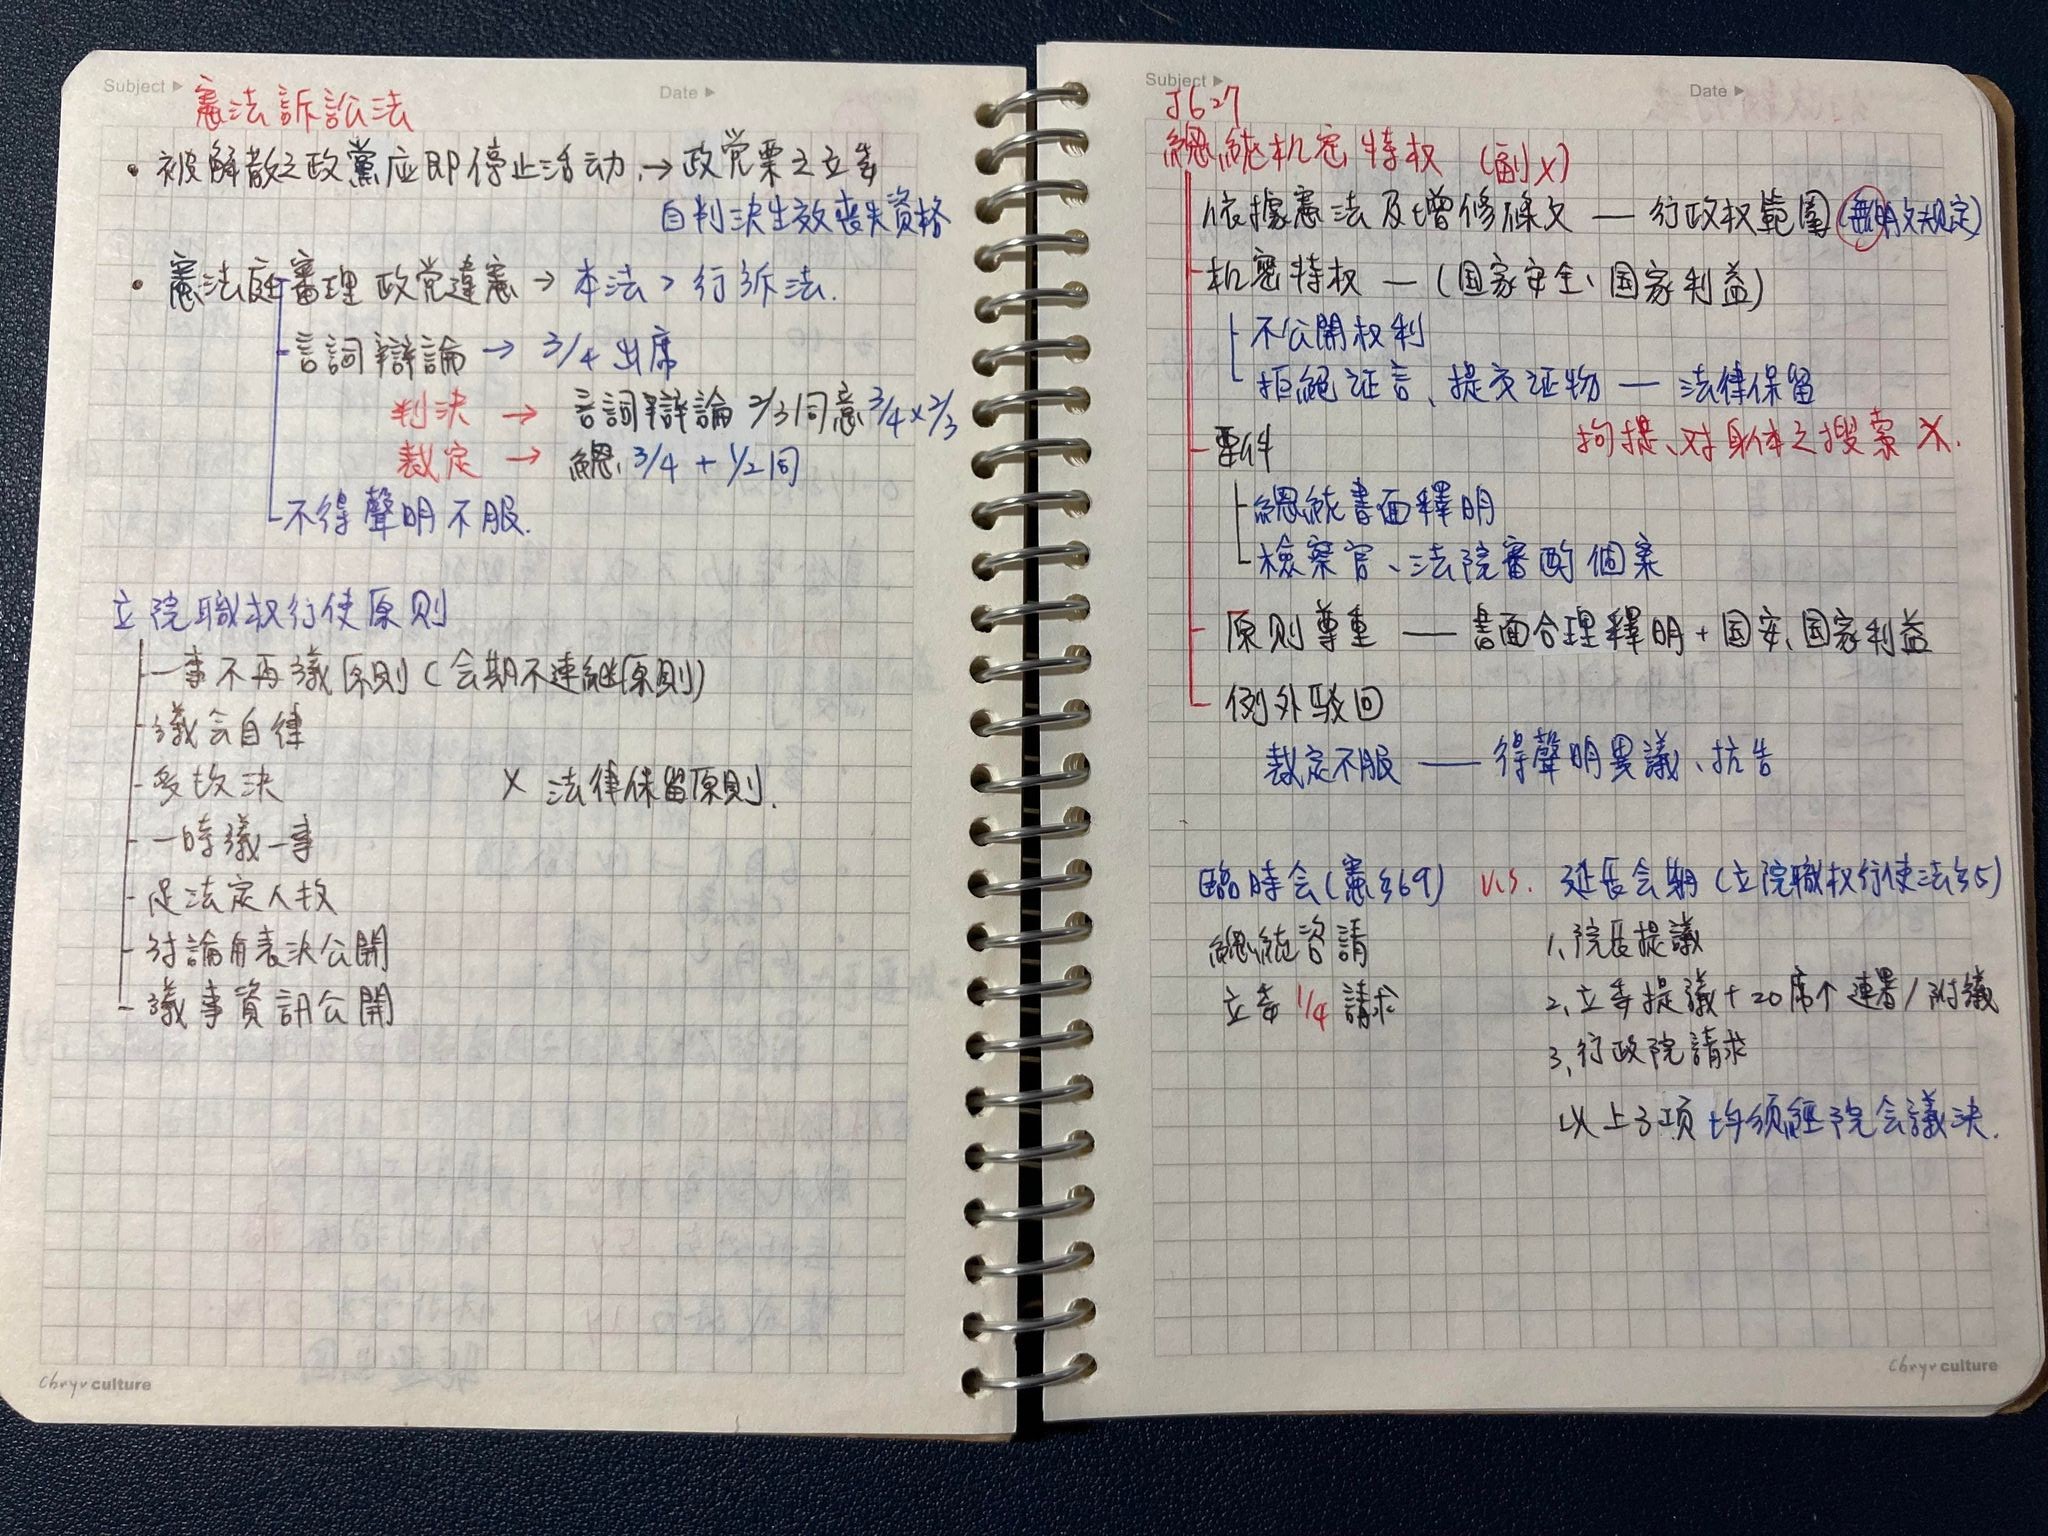 Subject ▶
Date ▶
憲法訴訟法
• 被解散之政黨应即停止活动 → 政党票之立委
自判決生效喪失資格
• 憲法庭審理政党違憲 → 本法 > 行訴法.
言詞辯論 → 3/4 出席
判決 → 言詞辯論 2/3 同意 3/4 × 2/3
裁定 → 總 3/4 + 1/2 同
不得聲明不服.
立院職权行使原則
一事不再議原則 (会期不連継原則)
議会自律
多数決 × 法律保留原則.
一時議一事
足法定人数
討論有表決公開
議事資訊公開
Chryr culture
Subject ▶
Date ▶
J627
總統机密特权 (副×)
依據憲法及增修條文 — 行政权範圍 (無明文規定)
机密特权 — (国家安全、国家利益)
不公開权利
拒絕証言、提交证物 — 法律保留
拘提、对身体之搜索 ×.
要件
總統書面釋明
檢察官、法院審酌個案
原則尊重 — 書面合理釋明 + 国安、国家利益
例外駁回
裁定不服 — 得聲明異議、抗告
臨時会 (憲§69) v.s. 延長会期 (立院職权行使法§5)
總統咨請
1. 院長提議
立委 1/4 請求
2. 立委提議 + 20席个連署 / 附議
3. 行政院請求
以上3項均须經院会議決.
Chryr culture